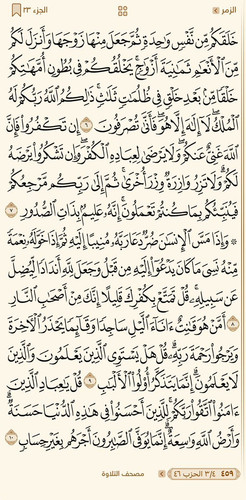 الزمر الجزء ٢٣
خَلَقَكُم مِّن نَّفْسٍ وَٰحِدَةٍ ثُمَّ جَعَلَ مِنْهَا زَوْجَهَا وَأَنزَلَ لَكُم
مِّنَ ٱلْأَنْعَٰمِ ثَمَٰنِيَةَ أَزْوَٰجٍ ۚ يَخْلُقُكُمْ فِى بُطُونِ أُمَّهَٰتِكُمْ
خَلْقًا مِّنۢ بَعْدِ خَلْقٍ فِى ظُلُمَٰتٍ ثَلَٰثٍ ۚ ذَٰلِكُمُ ٱللَّهُ رَبُّكُمْ لَهُ
ٱلْمُلْكُ ۖ لَآ إِلَٰهَ إِلَّا هُوَ ۖ فَأَنَّىٰ تُصْرَفُونَ ٦ إِن تَكْفُرُوا۟ فَإِنَّ
ٱللَّهَ غَنِىٌّ عَنكُمْ ۖ وَلَا يَرْضَىٰ لِعِبَادِهِ ٱلْكُفْرَ ۖ وَإِن تَشْكُرُوا۟ يَرْضَهُ
لَكُمْ ۗ وَلَا تَزِرُ وَازِرَةٌ وِزْرَ أُخْرَىٰ ۗ ثُمَّ إِلَىٰ رَبِّكُم مَّرْجِعُكُمْ
فَيُنَبِّئُكُم بِمَا كُنتُمْ تَعْمَلُونَ ۚ إِنَّهُۥ عَلِيمٌۢ بِذَاتِ ٱلصُّدُورِ ٧
۞ وَإِذَا مَسَّ ٱلْإِنسَٰنَ ضُرٌّ دَعَا رَبَّهُۥ مُنِيبًا إِلَيْهِ ثُمَّ إِذَا خَوَّلَهُۥ نِعْمَةً
مِّنْهُ نَسِىَ مَا كَانَ يَدْعُوٓا۟ إِلَيْهِ مِن قَبْلُ وَجَعَلَ لِلَّهِ أَندَادًا لِّيُضِلَّ
عَن سَبِيلِهِۦ ۚ قُلْ تَمَتَّعْ بِكُفْرِكَ قَلِيلًا ۖ إِنَّكَ مِنْ أَصْحَٰبِ ٱلنَّارِ
٨ أَمَّنْ هُوَ قَٰنِتٌ ءَانَآءَ ٱلَّيْلِ سَاجِدًا وَقَآئِمًا يَحْذَرُ ٱلْءَاخِرَةَ
وَيَرْجُوا۟ رَحْمَةَ رَبِّهِۦ ۗ قُلْ هَلْ يَسْتَوِى ٱلَّذِينَ يَعْلَمُونَ وَٱلَّذِينَ
لَا يَعْلَمُونَ ۗ إِنَّمَا يَتَذَكَّرُ أُو۟لُوا۟ ٱلْأَلْبَٰبِ ٩ قُلْ يَٰعِبَادِ ٱلَّذِينَ
ءَامَنُوا۟ ٱتَّقُوا۟ رَبَّكُمْ ۚ لِلَّذِينَ أَحْسَنُوا۟ فِى هَٰذِهِ ٱلدُّنْيَا حَسَنَةٌ ۗ
وَأَرْضُ ٱللَّهِ وَٰسِعَةٌ ۗ إِنَّمَا يُوَفَّى ٱلصَّٰبِرُونَ أَجْرَهُم بِغَيْرِ حِسَابٍ
١٠
٤٥٩ ٣/٤ الحزب ٤٦ مصحف التلاوة